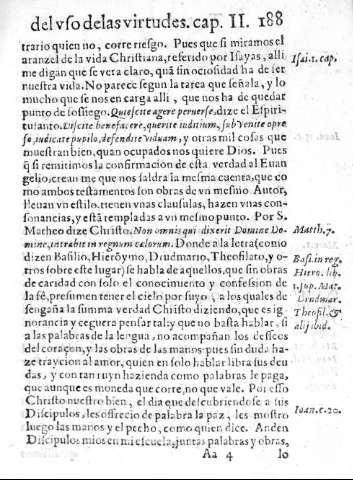 del vso de las virtudes. cap. II. 188
trario quien no, corre riesgo. Pues que si miramos el
aranzel de la vida Christiana, referido por Isayas, alli
me digan que se vera claro, quā sin ociosidad ha de ser
nuestra vida. No parece segun la tarea que señala, y lo
mucho que se nos en carga alli, que nos ha de quedar
punto de sossiego. Quiescite agere peruerse, dize el Espiri-
tu santo. Discite benefacere, querite iuditium, subvenite opre
so, iudicate pupilo, defendite viduam, y otras mil cosas que
muestran bien, quan ocupados nos quiere Dios. Pues
q̃ si remitimos la confirmacion de esta verdad al Euan
gelio, crean me que nos saldra la mesma cuenta, que co
mo ambos testamentos son obras de vn mesmo Autor,
lleuan vn estilo, tienen vnas clausulas, hazen vnas con-
sonancias, y està templadas a vn mesmo punto. Por S.
Matheo dize Christo. Non omnis qui dixerit Domine Do-
mine, intrabit in regnum celorum. Donde a la letra (como
dizen Basilio, Hierõymo, Drudmario, Theofilato, y o-
tros sobre este lugar) se habla de aquellos, que sin obras
de caridad con solo el conocimiento y confession de
la fé, presumen tener el cielo por suyo, a los quales de
sengaña la summa verdad Christo diziendo, que es ig-
norancia y ceguera pensar tal: y que no basta hablar, si
a las palabras de la lengua, no acompañan los desseos
del coraçon, y las obras de las manos: pues sin duda ha-
ze traycion al amor, quien en solo hablar libra sus deu
das, y con tan ruyn hazienda como palabras le paga,
que aunque es moneda que corre, no que vale. Por esso
Christo nuestro bien, el dia que descubriendose a sus
Discipulos, les offrecio de palabra la paz, les mostro
luego las manos y el pecho, como quien dice. Anden
Discipulos mios en mi escuela, juntas palabras y obras,
Aa 4 lo
Isai. 1. cap.
Matth. 7.
Bas. in reg.
Hiero. lib.
1. sup. Mat.
Drudmar.
Theofil. &
alij ibid.
Ioan. c. 20.